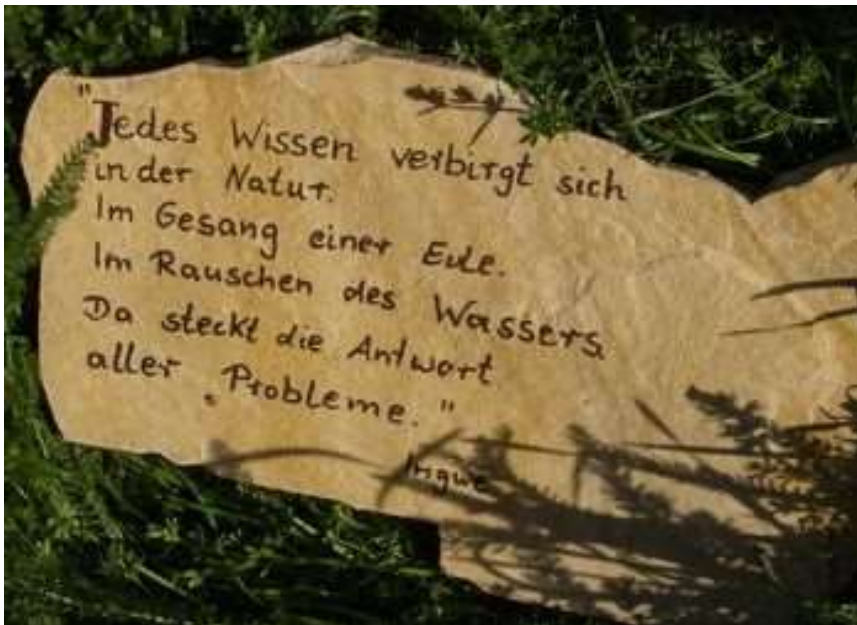 "Jedes Wissen verbirgt sich
in der Natur.
Im Gesang einer Eule.
Im Rauschen des Wassers.
Da steckt die Antwort
aller Probleme."
Ingwe